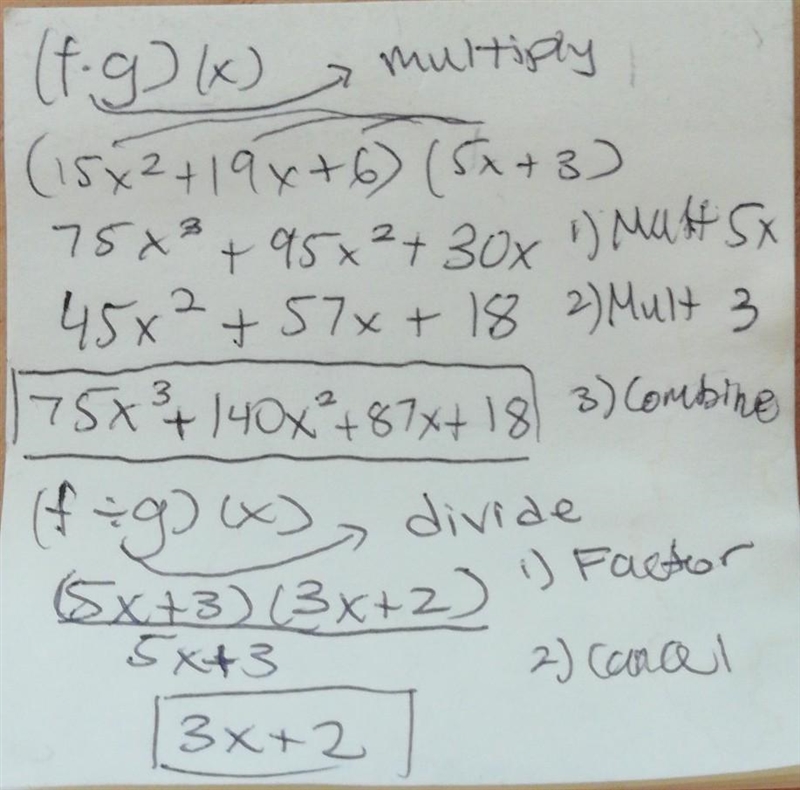 (f·g)(x) → multiply
(15x²+19x+6)(5x+3)
75x³+95x²+30x 1) Mult 5x
45x²+57x+18 2) Mult 3
75x³+140x²+87x+18 3) Combine
(f÷g)(x) → divide
(5x+3)(3x+2) 1) Factor
5x+3 2) Cancel
3x+2